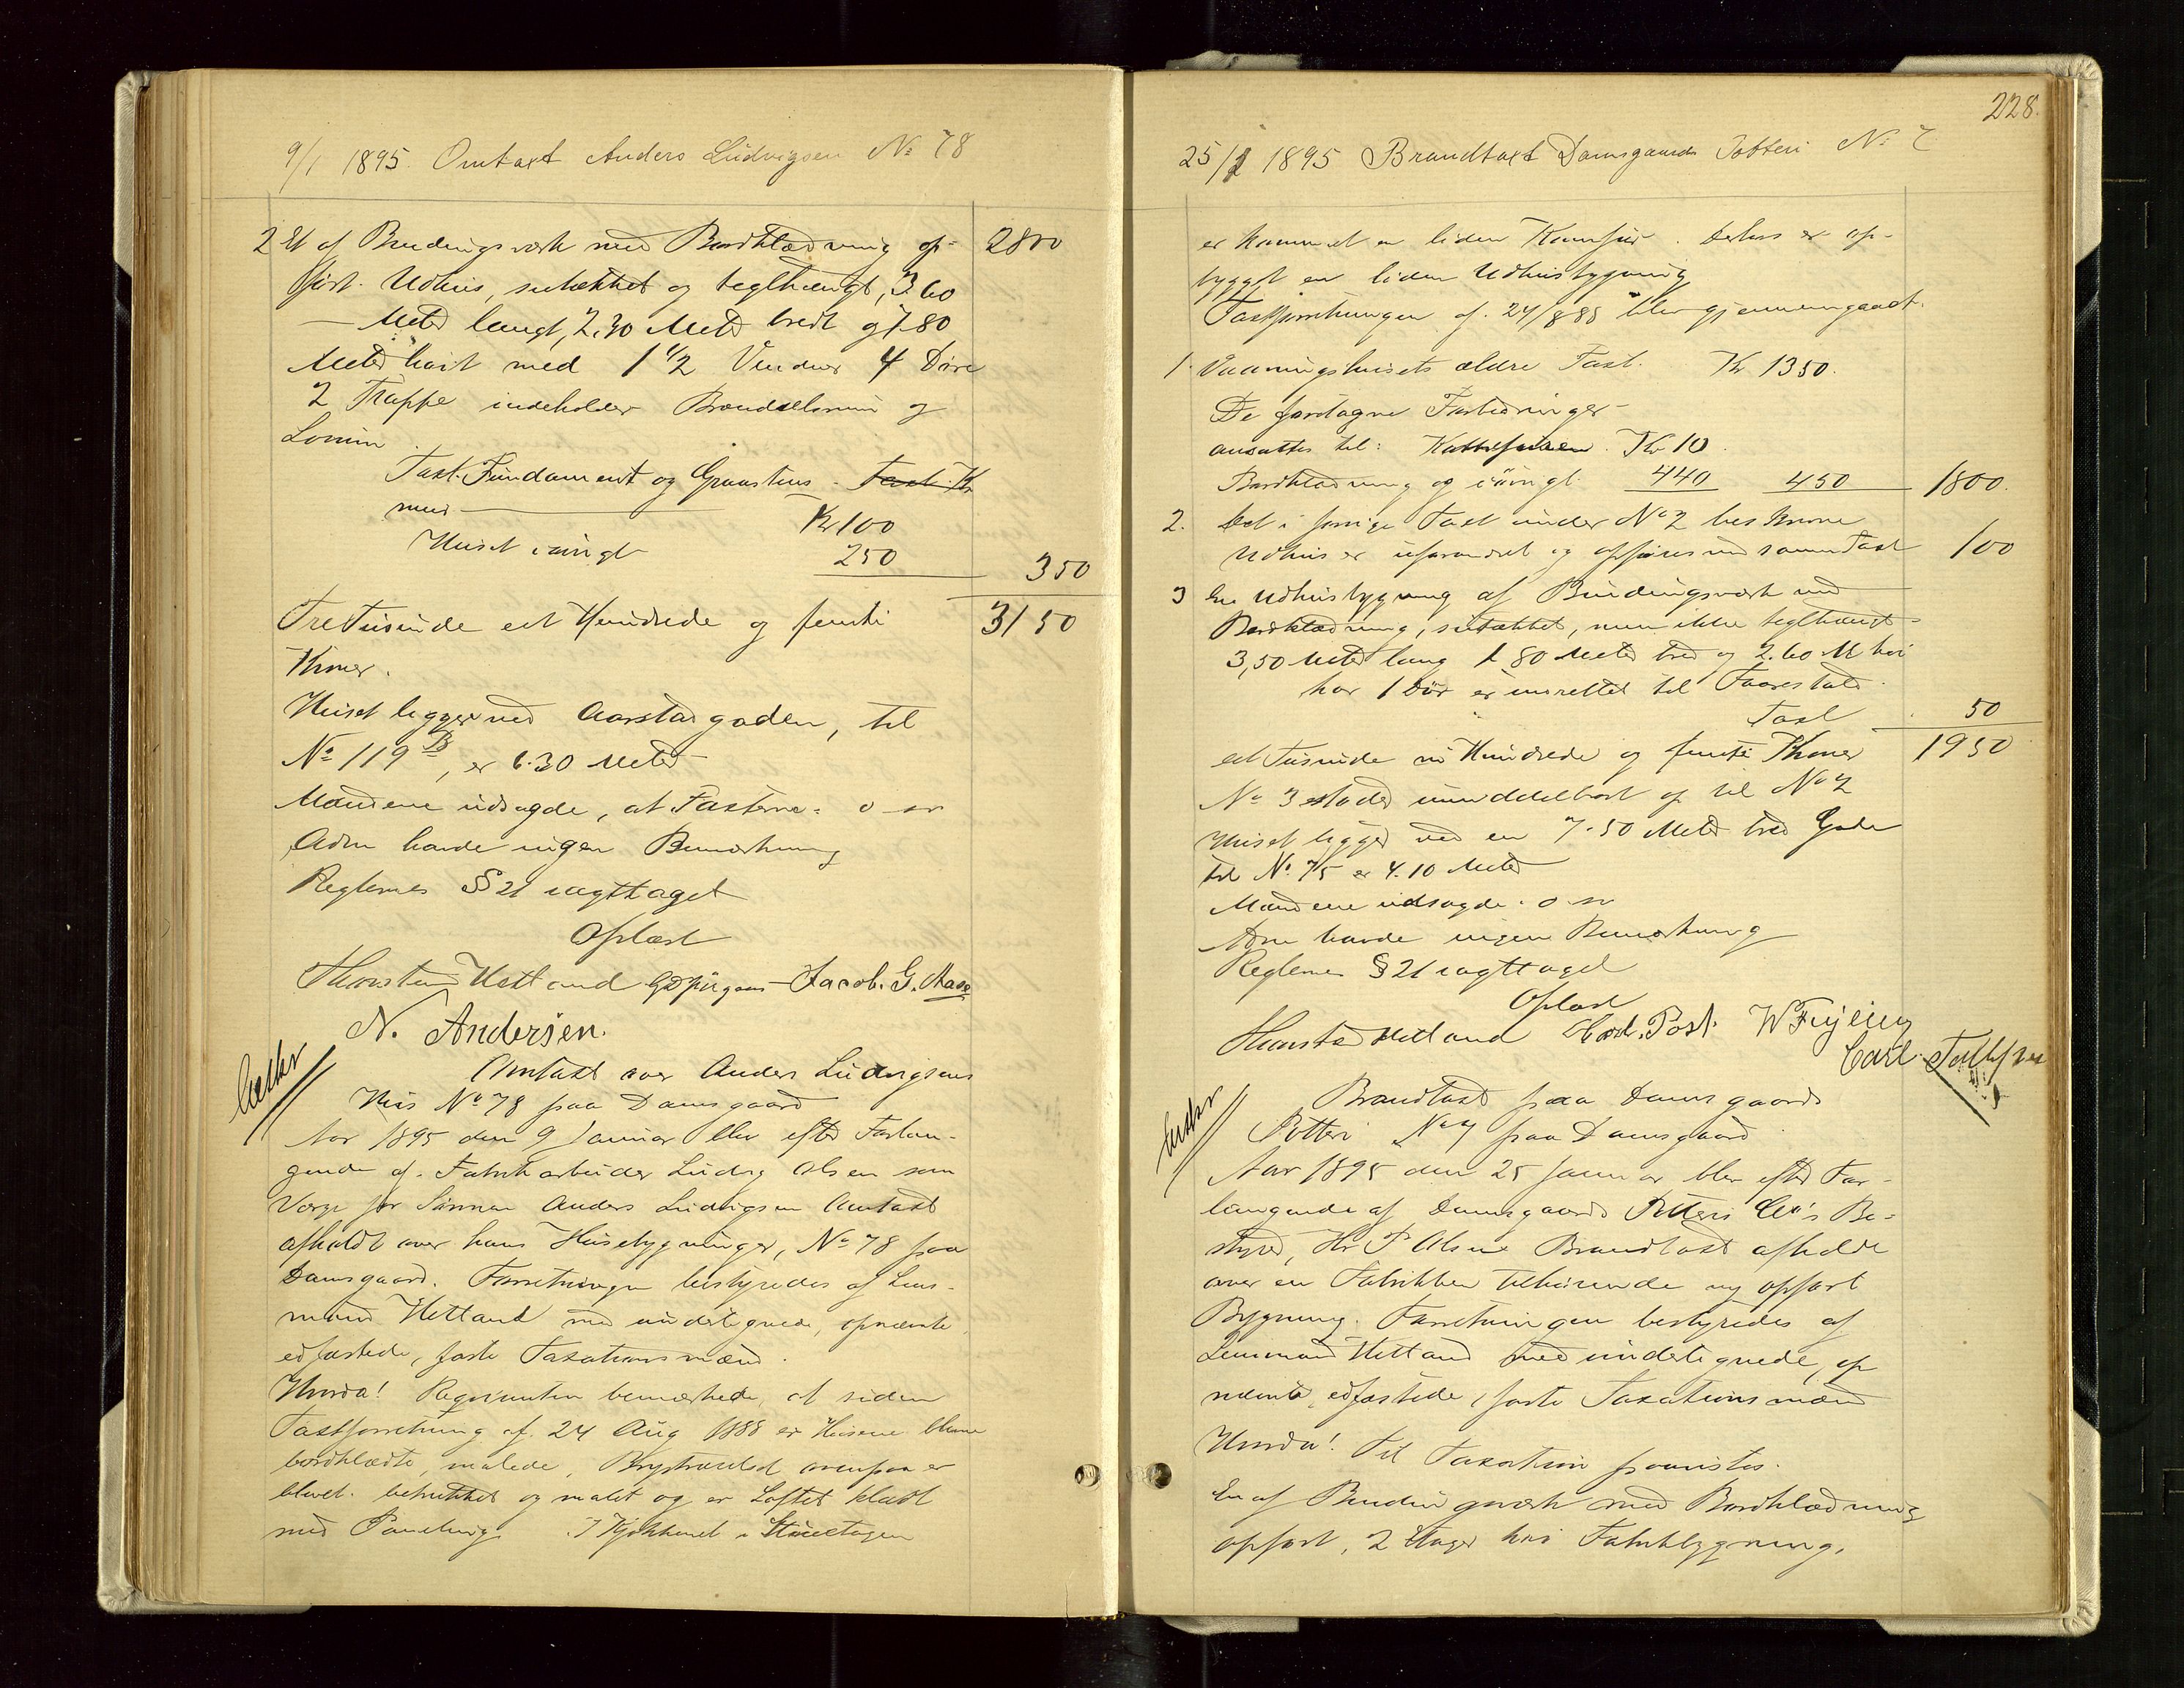 9/1 1895. Omtaxt Anders Ludvigsen No 78
2 Et af Bindingsværk med Bordklædning op- 2800
ført Udhus, sutækket og teglhængt, 3.60
Meter langt, 2.30 Meter bredt og 1.80
Meter høit med 1 1/2 Vinduer 4 Døre
2 Trappe indeholder Brændselsrum og
Taxt. Fundament og Graastens
mur Kr 100
Huset iøvrigt 250 350
Tre Tusinde et Hundrede og femti 3150
Kroner.
Huset ligger ved Aarstadgaden, til
No 119 B, er 6.30 Meter
Mændene udsagde, at Taxterne o sv
Adm havde ingen Bemærkning
Reglernes § 21 iagttaget
Oplæst
Thorsten Hetland Jacob. G. Aase
N. Andersen.
Omtaxt over Anders Ludvigsens
Hus No 78 paa Damsgaard
Aar 1895 den 9 Januar blev efter Forlan-
gende af Fabrikarbeider Ludvig Olsen som
Verge for Sønnen Anders Ludvigsen Omtaxt
afholdt over hans Husebygninger, No 78 paa
Damsgaard. Forretningen bestyredes af Lens-
mand Hetland med undertegnede, opnævnte
edfæstede, faste Taxationsmænd.
Hvorda! Rekvirenten bemærkede, at siden
Taxtforretning af 24 Aug 1888 er Husene blevne
bordklædte, malede, ovenpaa er
blevet betrukket og malet og er Loftet klædt
med Paneling. I Kjøkkenet i Stueetagen
228.
25/1 1895 Brandtaxt Damsgaards Potteri No 7
er kommet en liden Komfur. Derhos er op-
bygget en liden Udhusbygning
Taxtforretningen af 24/8 88 blev gjennemgaaet.
1. Vaaningshusets ældre Taxt. Kr 1350.
De foretagne Forbedringer
ansattes til: Kr 10
Bordklædning og iøvrigt 440 450 1800.
2. Det i forrige Taxt under No 2 beskrevne
Udhus er uforandret og opføres med samme Taxt 100
3 En Udhusbygning af Bindingsværk med
Bordklædning, sutækket, men ikke teglhængt
3,50 Meter lang 1.80 Meter bred og 2.60 M høi
har 1 Dør er indrettet til Faarestald.
Taxt 50
et Tusinde ni Hundrede og femti Kroner 1950
No 3 støder umiddelbart op til No 2
Huset ligger ved en 7.50 Meter bred Gade
til No 75 er 4.10 Meter
Mændene udsagde o sv
Adm havde ingen Bemærkning
Reglernes § 21 iagttaget
Oplæst
Thorsten Hetland Post. W
Carl
Brandtaxt paa Damsgaards
Potteri No 7 paa Damsgaard
Aar 1895 den 25 Januar blev efter For-
langende af Damsgaards Potteri Co's Be-
styrer, Hr P Olsen Brandtaxt afholdt
over en Fabrikken tilhørende ny opført
Bygning. Forretningen bestyredes af
Lensmand Hetland med undertegnede, op
nævnte, edfæstede, faste Taxationsmænd
Hvorda! Til Taxation paavistes.
En af Bindingsværk med Bordklædning
opført, 2 Etager høi Fabrikbygning,